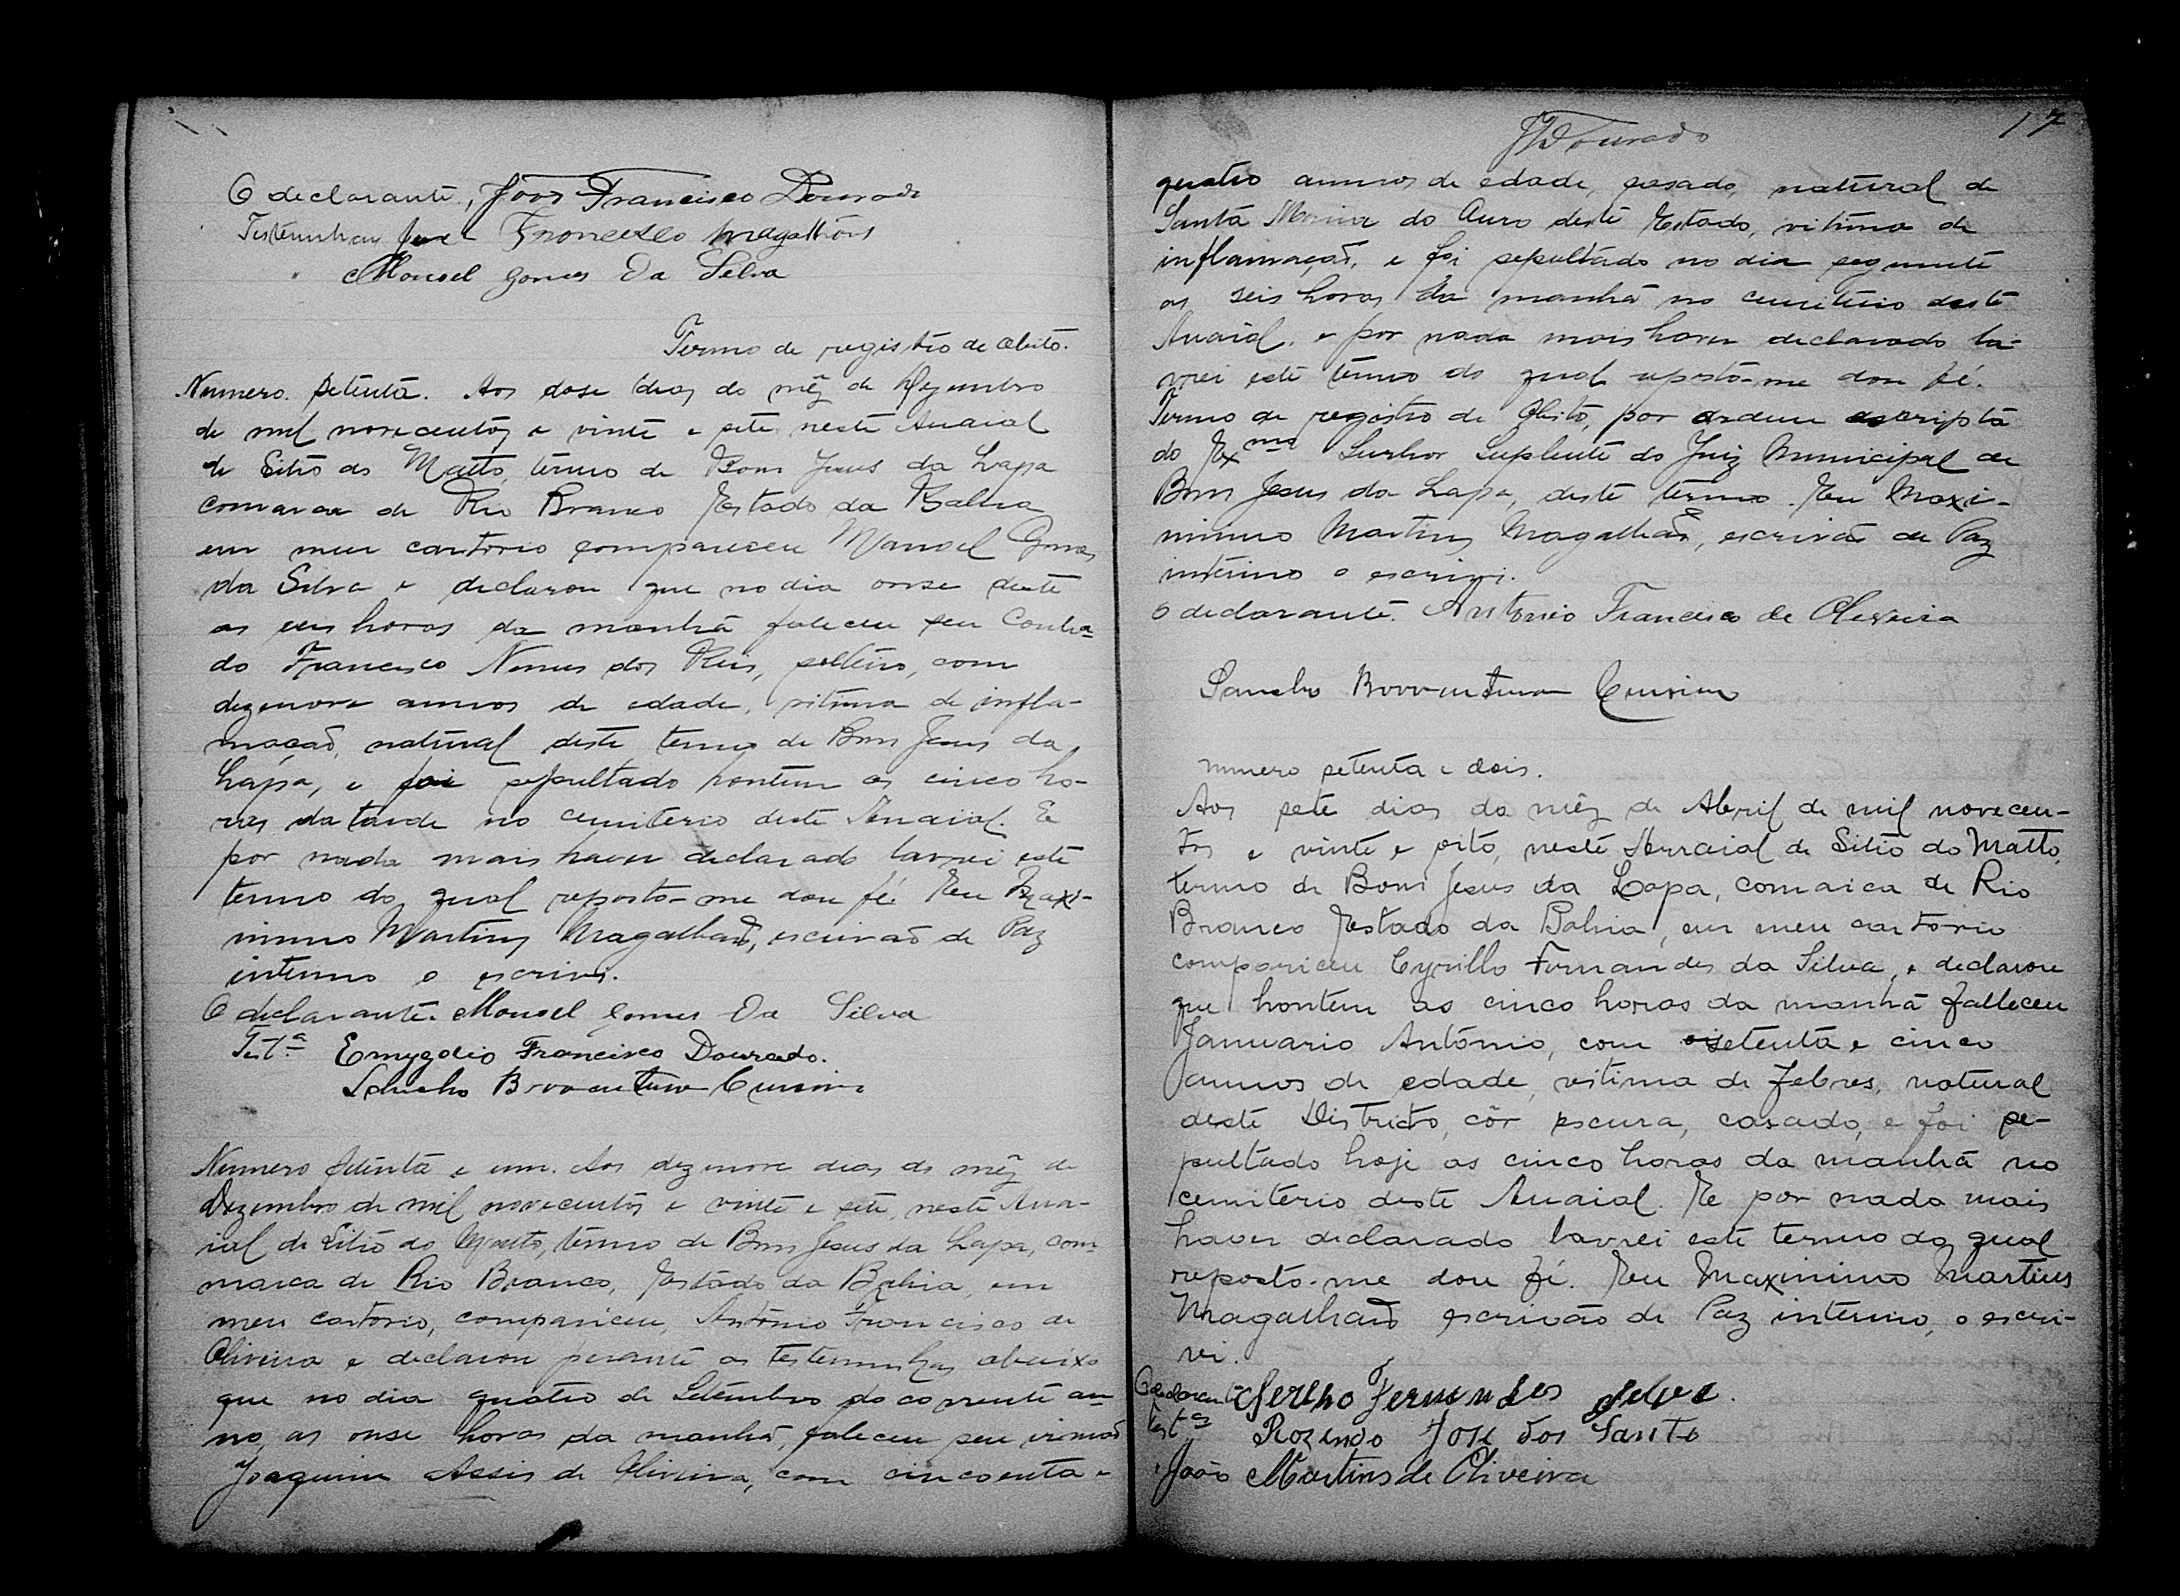 O declarante, João Francisco Dourado
Testemunhas José Francisco Magalhões
Manoel Gomes Da Silva
Termo de registro de obito.
Numero. setenta. Aos dose dias do mêz de Dezembro
de mil novecentos e vinte e sete neste Arraial
de Sitio do Matto, têrmo de Bom Jesus da Lapa
comarca de Rio Branco Estado da Bahia
em meu cartorio compareceu Manoel Gomes
da Silva e declarou que no dia onse deste
as horas da manhã faleceu seu Cunha-
do Francisco Nunes dos Reis, solteiro, com
dezenove annos de edade, vitima de infla-
mação, natural deste termo de Bom Jesus da
Lapa, e foi sepultado hontem as cinco ho-
ras da tarde no cemiterio deste Arraial. E
por nada mais haver declarado lavrei este
termo do qual reposto-me dou fé. Eu Maxi-
mino Martins Magalhaẽs, escrivaõ de Paz
interino o escrivi.
O declarante. Manoel Gomes Da Silva
Test.ª Emygdio Francisco Dourado.
Sancho Boaventura
Numero setenta e um. Aos dezenove dias do mêz de
Dezembro de mil novecentos e vinte e sete, neste Arra-
ial de Sitio do Matto, têrmo de Bom Jesus da Lapa, com-
marca de Rio Branco, Estado da Bahia, em
meu cartorio, compariceu, Antonio Francisco de
Oliveira e declarou perante as testemunhas abaixo
que no dia quatro de Setembro do corrente an-
no, as onse horas da manhã, faleceu seu irmaõ
Joaquim Assis de Oliveira, com cincoenta e
17
JFDourado
quatro annos de edade, casado, natural de
Santa Maria do Ouro deste Estado, vitima de
inflamaçaõ, e foi sepultado no dia seguinte
as seis horas da manhã no cemiterio deste
Arraial. e por nada mais haver declarado la-
vrei este têrmo do qual reposto-me dou fé.
Termo de registro de Obito, por ordem escripta
do Exmo Senhor Suplente do Juiz Municipal de
Bom Jesus da Lapa, deste têrmo. Eu Maxi-
mimo Martins Magalhaẽs, escrivaõ de Paz
interino o escrivi.
O declarante. Antonio Francisco de Oliveira
Sancho Boaventura
numero setenta e dois.
Aos sete dias do mêz de Abril de mil novecen-
tos e vinte e oito, neste Arraial de Sitio do Matto,
termo de Bom Jesus da Lapa, comarca de Rio
Branco Estado da Bahia, em meu cartorio
compariceu Cyrillo Fernandes da Silva, e declarou
que hontem as cinco horas da manhã falleceu
Januario Antônio, com setenta e cinco
annos de edade, vitima de febres, natural
deste Districto, côr escura, casado, e foi se-
pultado hoje as cinco horas da manhã no
cemiterio deste Arraial. E por nada mais
haver declarado lavrei este termo do qual
reposto-me dou fé. Eu Maximino Martins
Magalhaẽs escrivão de Paz interino, o escri-
vi.
O declarante Fernandes Silva.
Test.as Rozendo José dos Santo
João Martins de Oliveira